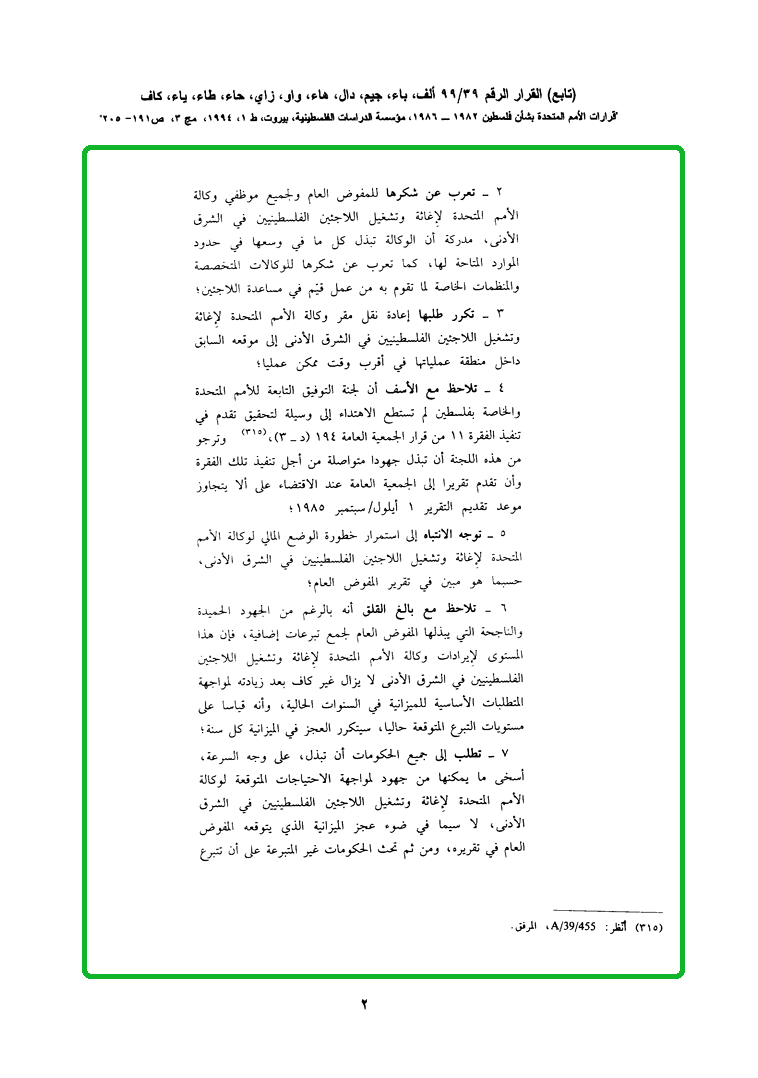 (تابع) القرار الرقم ٩٩/٣٩ ألف، باء، جيم، دال، هاء، واو، زاي، حاء، طاء، ياء، كاف
"قرارات الأمم المتحدة بشأن فلسطين ١٩٨٢ ــ ١٩٨٦، مؤسسة الدراسات الفلسطينية، بيروت، ط ١، ١٩٩٤، مج ٣، ص١٩١- ٢٠٥"
٢ ــ تعرب عن شكرها للمفوض العام ولجميع موظفي وكالة
الأمم المتحدة لإغاثة وتشغيل اللاجئين الفلسطينيين في الشرق
الأدنى، مدركة أن الوكالة تبذل كل ما في وسعها في حدود
الموارد المتاحة لها، كما تعرب عن شكرها للوكالات المتخصصة
والمنظمات الخاصة لما تقوم به من عمل قيّم في مساعدة اللاجئين؛
٣ ــ تكرر طلبها إعادة نقل مقر وكالة الأمم المتحدة لإغاثة
وتشغيل اللاجئين الفلسطينيين في الشرق الأدنى إلى موقعه السابق
داخل منطقة عملياتها في أقرب وقت ممكن عمليا؛
٤ ــ تلاحظ مع الأسف أن لجنة التوفيق التابعة للأمم المتحدة
والخاصة بفلسطين لم تستطع الاهتداء إلى وسيلة لتحقيق تقدم في
تنفيذ الفقرة ١١ من قرار الجمعية العامة ١٩٤ (د ــ ٣)،(٣١٥) وترجو
من هذه اللجنة أن تبذل جهودا متواصلة من أجل تنفيذ تلك الفقرة
وأن تقدم تقريرا إلى الجمعية العامة عند الاقتضاء على ألا يتجاوز
موعد تقديم التقرير ١ أيلول/سبتمبر ١٩٨٥؛
٥ ــ توجه الانتباه إلى استمرار خطورة الوضع المالي لوكالة الأمم
المتحدة لإغاثة وتشغيل اللاجئين الفلسطينيين في الشرق الأدنى،
حسبما هو مبين في تقرير المفوض العام؛
٦ ــ تلاحظ مع بالغ القلق أنه بالرغم من الجهود الحميدة
والناجحة التي يبذلها المفوض العام لجمع تبرعات إضافية، فإن هذا
المستوى لإيرادات وكالة الأمم المتحدة لإغاثة وتشغيل اللاجئين
الفلسطينيين في الشرق الأدنى لا يزال غير كاف بعد زيادته لمواجهة
المتطلبات الأساسية للميزانية في السنوات الحالية، وأنه قياسا على
مستويات التبرع المتوقعة حاليا، سيتكرر العجز في الميزانية كل سنة؛
٧ ــ تطلب إلى جميع الحكومات أن تبذل، على وجه السرعة،
أسخى ما يمكنها من جهود لمواجهة الاحتياجات المتوقعة لوكالة
الأمم المتحدة لإغاثة وتشغيل اللاجئين الفلسطينيين في الشرق
الأدنى، لا سيما في ضوء عجز الميزانية الذي يتوقعه المفوض
العام في تقريره، ومن ثم تحث الحكومات غير المتبرعة على أن تتبرع
(٣١٥) أنظر: A/39/455، المرفق.
٢